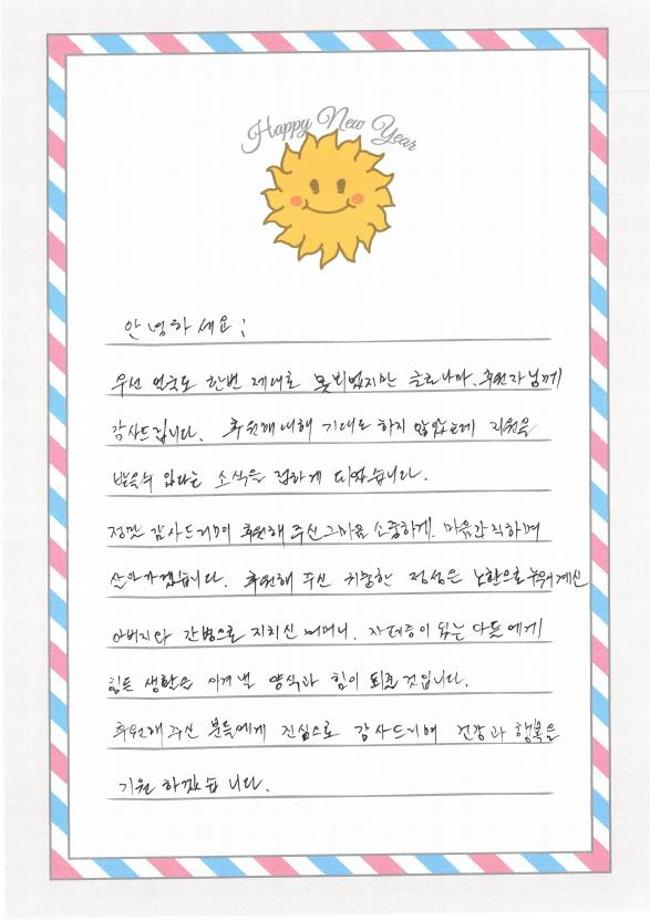 Happy New Year
안녕하세요;
우선 얼굴도 한번 제대로 못뵈었지만 글로나마. 후원자님께
감사드립니다. 후원해대해 기대도 하지 않았는데 지원을
받을수 있다는 소식을 접하게 되었습니다.
정말 감사드리며 후원해 주신 그마음 소중하게. 마음간직하며
살아가겠습니다. 후원해 주신 귀중한 정성은 노환으로 누워계신
아버지와 간병으로 지치신 어머니. 자폐증이 있는 다듯에게
힘든 생활을 이겨낼 양식과 힘이 되줄것입니다.
후원해주신 분들에게 진심으로 감사드리며 건강과 행복을
기원 하겠습니다.